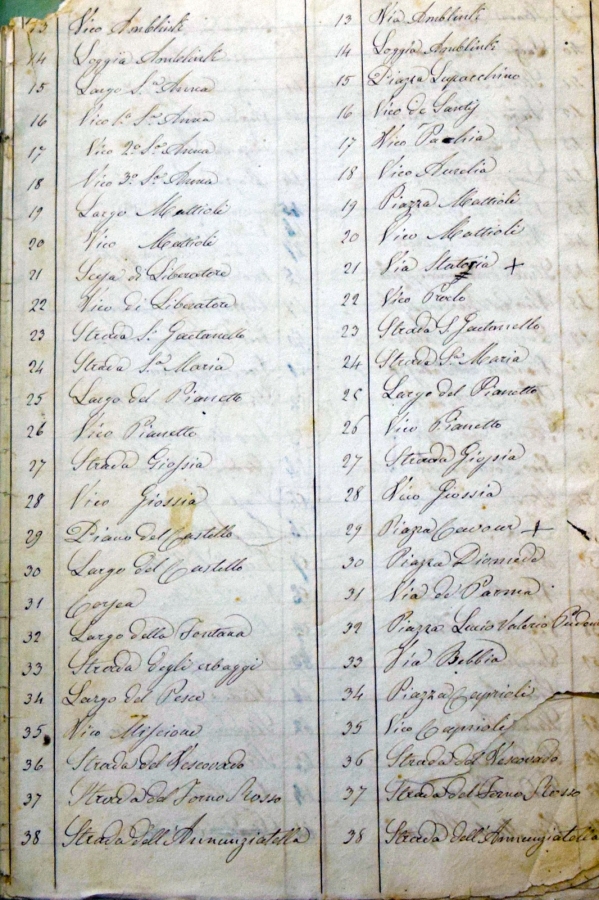 13 Vico Amblink
14 Loggia Amblink
15 Largo S.ª Anna
16 Vico 1.º S.ª Anna
17 Vico 2.º S.ª Anna
18 Vico 3.º S.ª Anna
19 Largo Mattioli
20 Vico Mattioli
21 Scesa di Liberatore
22 Vico di Liberatore
23 Strada S. Gaetanello
24 Strada S.ª Maria
25 Largo del Pianetto
26 Vico Pianetto
27 Strada Giossia
28 Vico Giossia
29 Piano del Castello
30 Largo del Castello
31 Corsea
32 Largo della Fontana
33 Strada degli erbaggi
34 Largo del Pesce
35 Vico Miscione
36 Strada del Vescovado
37 Strada del Forno Rosso
38 Strada dell'Annunziatella
13 Via Amblink
14 Loggia Amblink
15 Piazza Lupacchino
16 Vico de Santis
17 Vico Pachia
18 Vico Aurelia
19 Piazza Mattioli
20 Vico Mattioli
21 Via Statoria +
22 Vico
23 Strada S. Gaetanello
24 Strada S.ª Maria
25 Largo del Pianetto
26 Vico Pianetto
27 Strada Giossia
28 Vico Giossia
29 Piazza Cavour +
30 Piazza Diomede
31 Via de Parma
32 Piazza Lucio Valerio
33 Via Bebbia
34 Piazza Caprioli
35 Vico Caprioli
36 Strada del Vescovado
37 Strada del Forno Rosso
38 Strada dell'Annunziatella